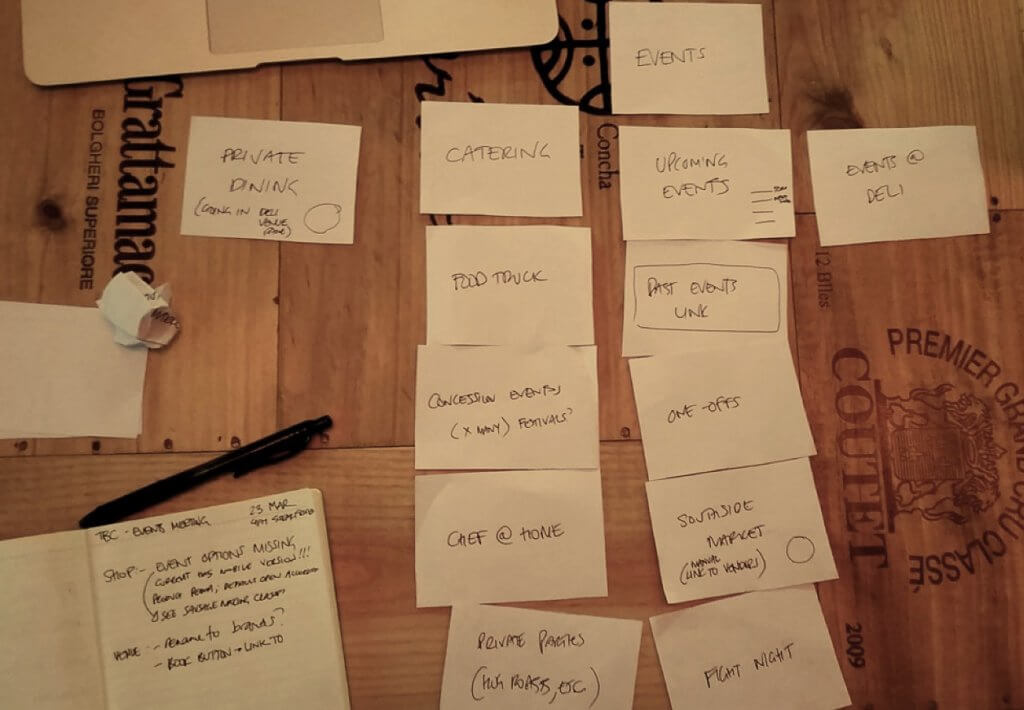 EVENTS
PRIVATE
DINING
DELI
VENUE
CATERING
UPCOMING
EVENTS
EVENTS @
DELI
FOOD TRUCK
PAST EVENTS
LINK
CONCESSION EVENTS
(X MANY) FESTIVALS?
ONE-OFFS
CHEF @ HOME
SOUTHSIDE
MARKET
(MANUAL
LINK TO VENDORS)
PRIVATE PARTIES
(HOG ROASTS, ETC)
FIGHT NIGHT
TBC - EVENTS MEETING
23 MAR
SHOP:- EVENT OPTIONS MISSING
CURRENT MOBILE VERSION!!!
DEFAULT OPEN
SEE SAUSAGE MAKING CLASS
HOME:- rename to brands?
- BOOK BUTTON → LINK TO
Grattamac
BOLGHERI SUPERIORE
Concha
12 Btles
PREMIER GRAND CRU CLASSÉ
COUTET
2009